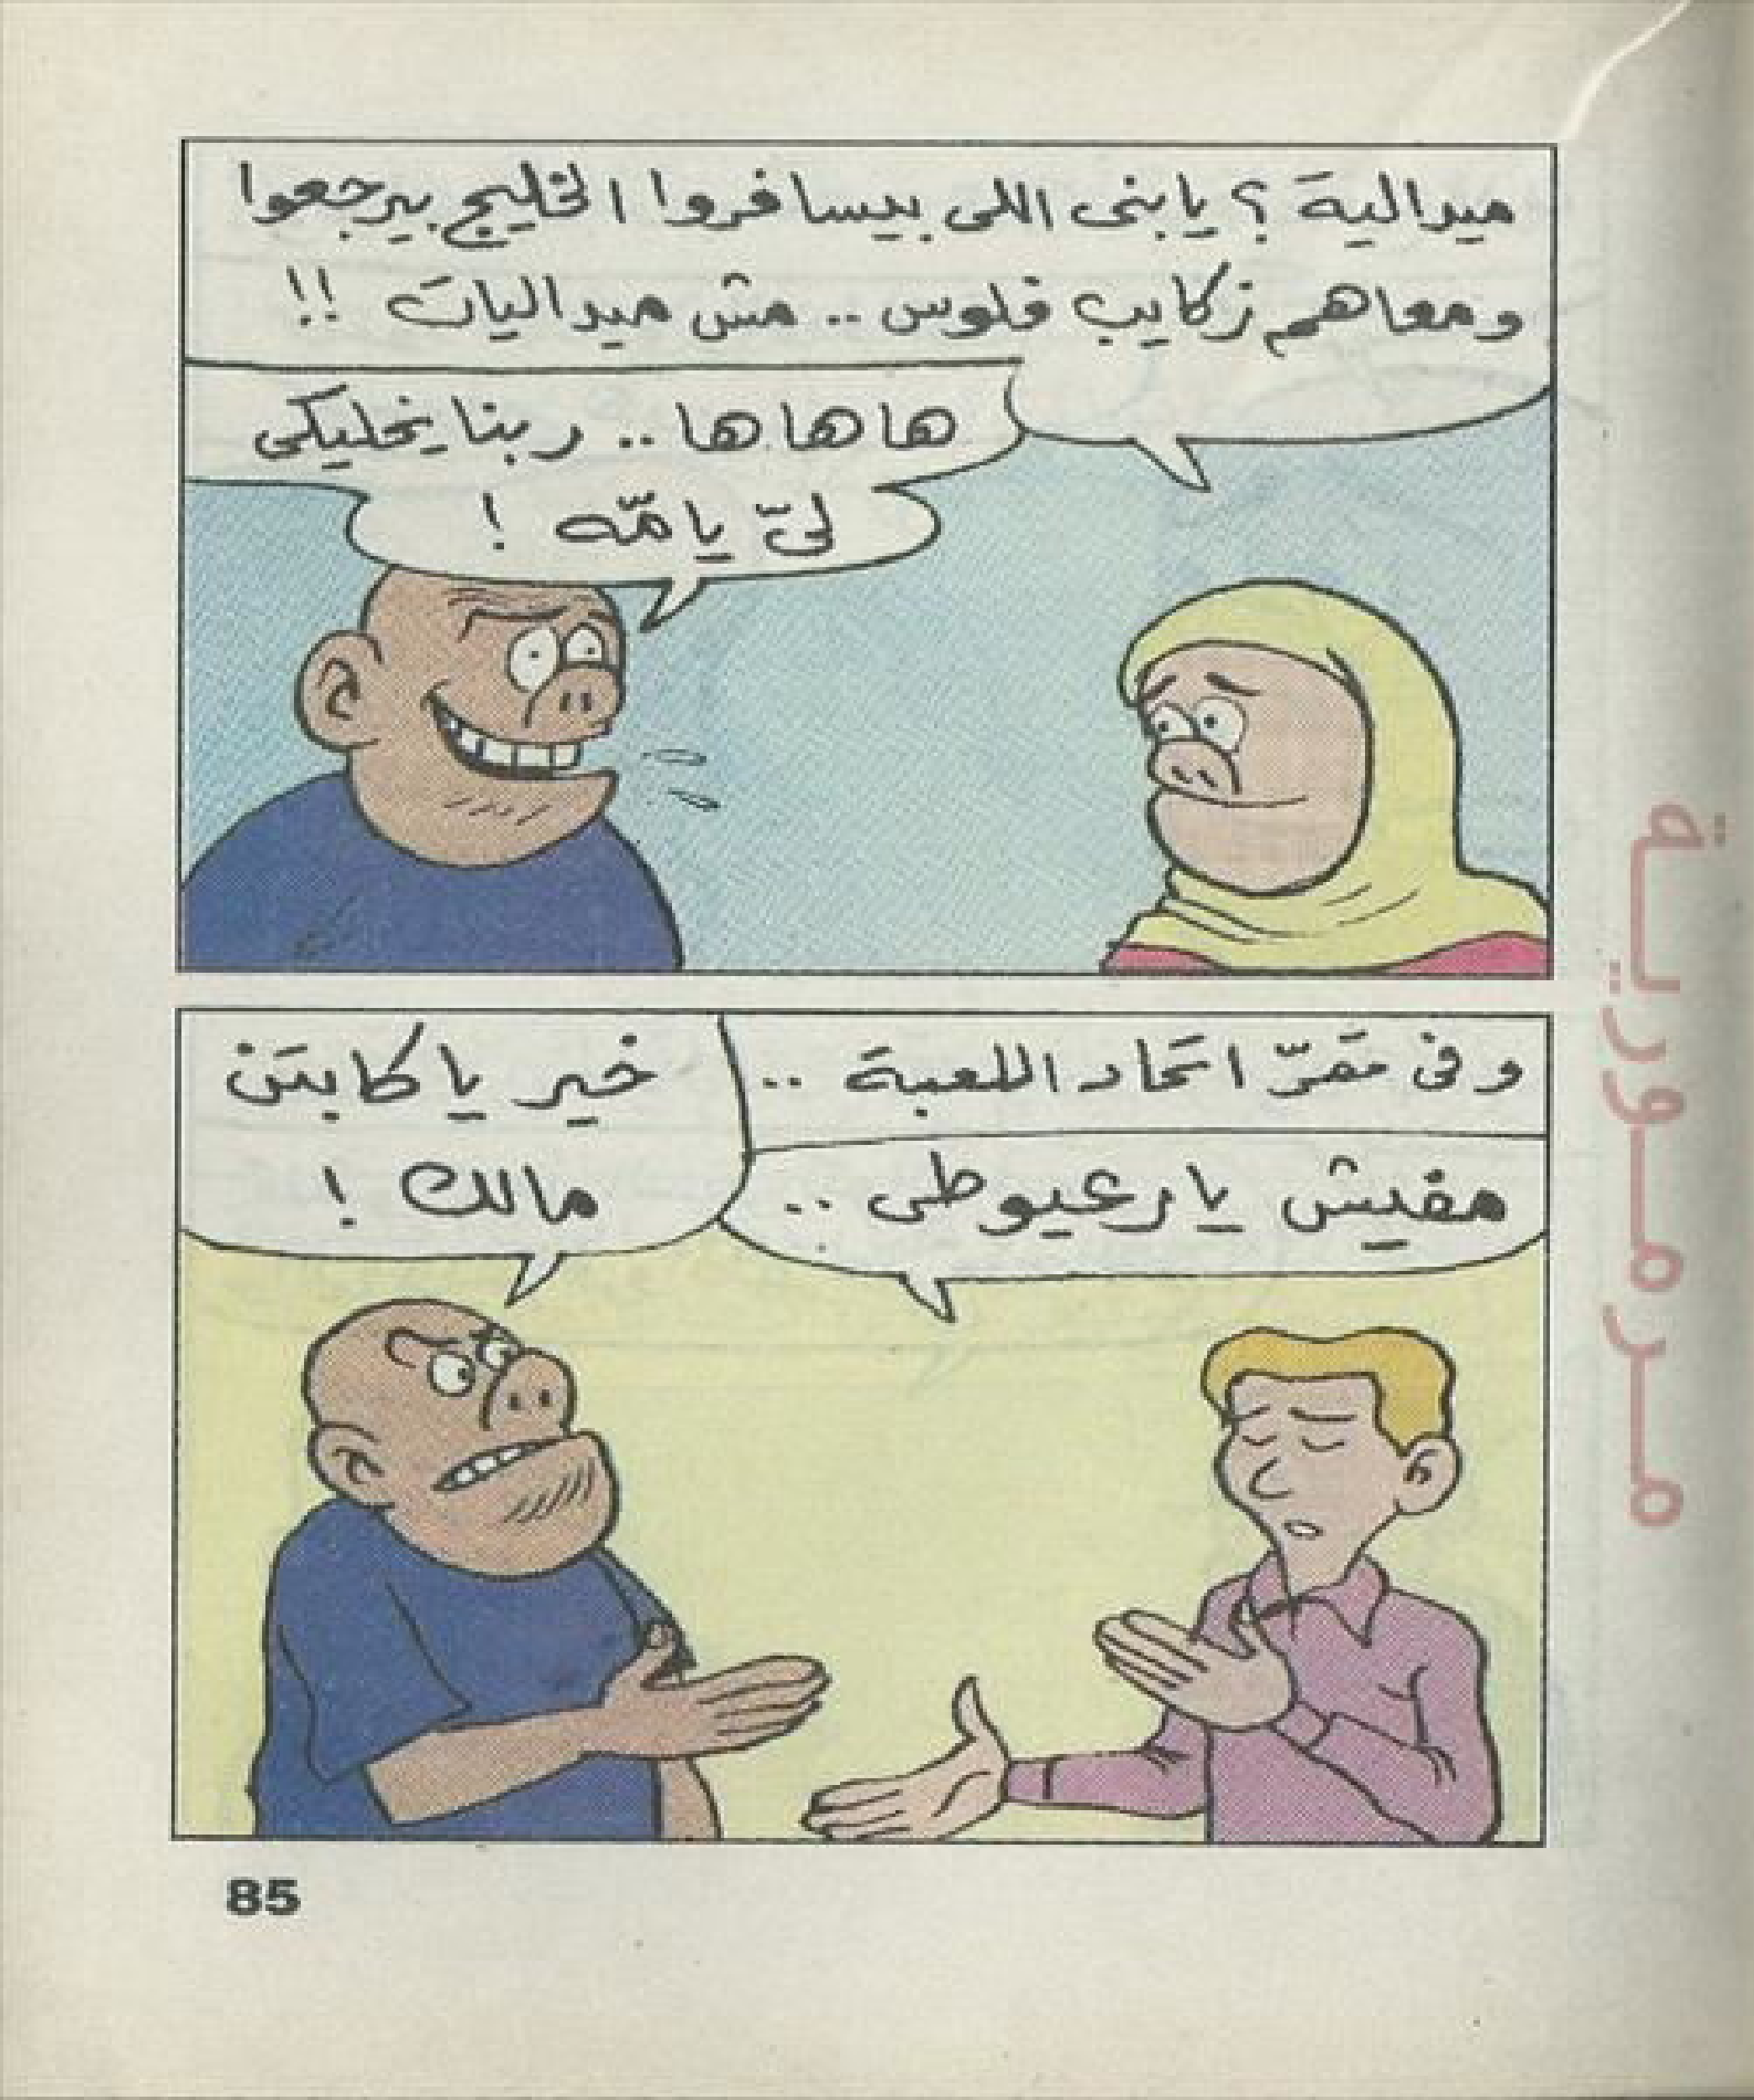 ميدالية ؟ يابنى اللى بيسافروا الخليج بيرجعوا
ومعاهم زكايب فلوس .. مش ميداليات !!
هاهاها .. ربنا يخليكى
ليّ يامّه !
وفى مقرّ اتحاد اللعبة ..
مفيش يا رعيوطى ..
خير يا كابتن
مالك !
مرمورية
85